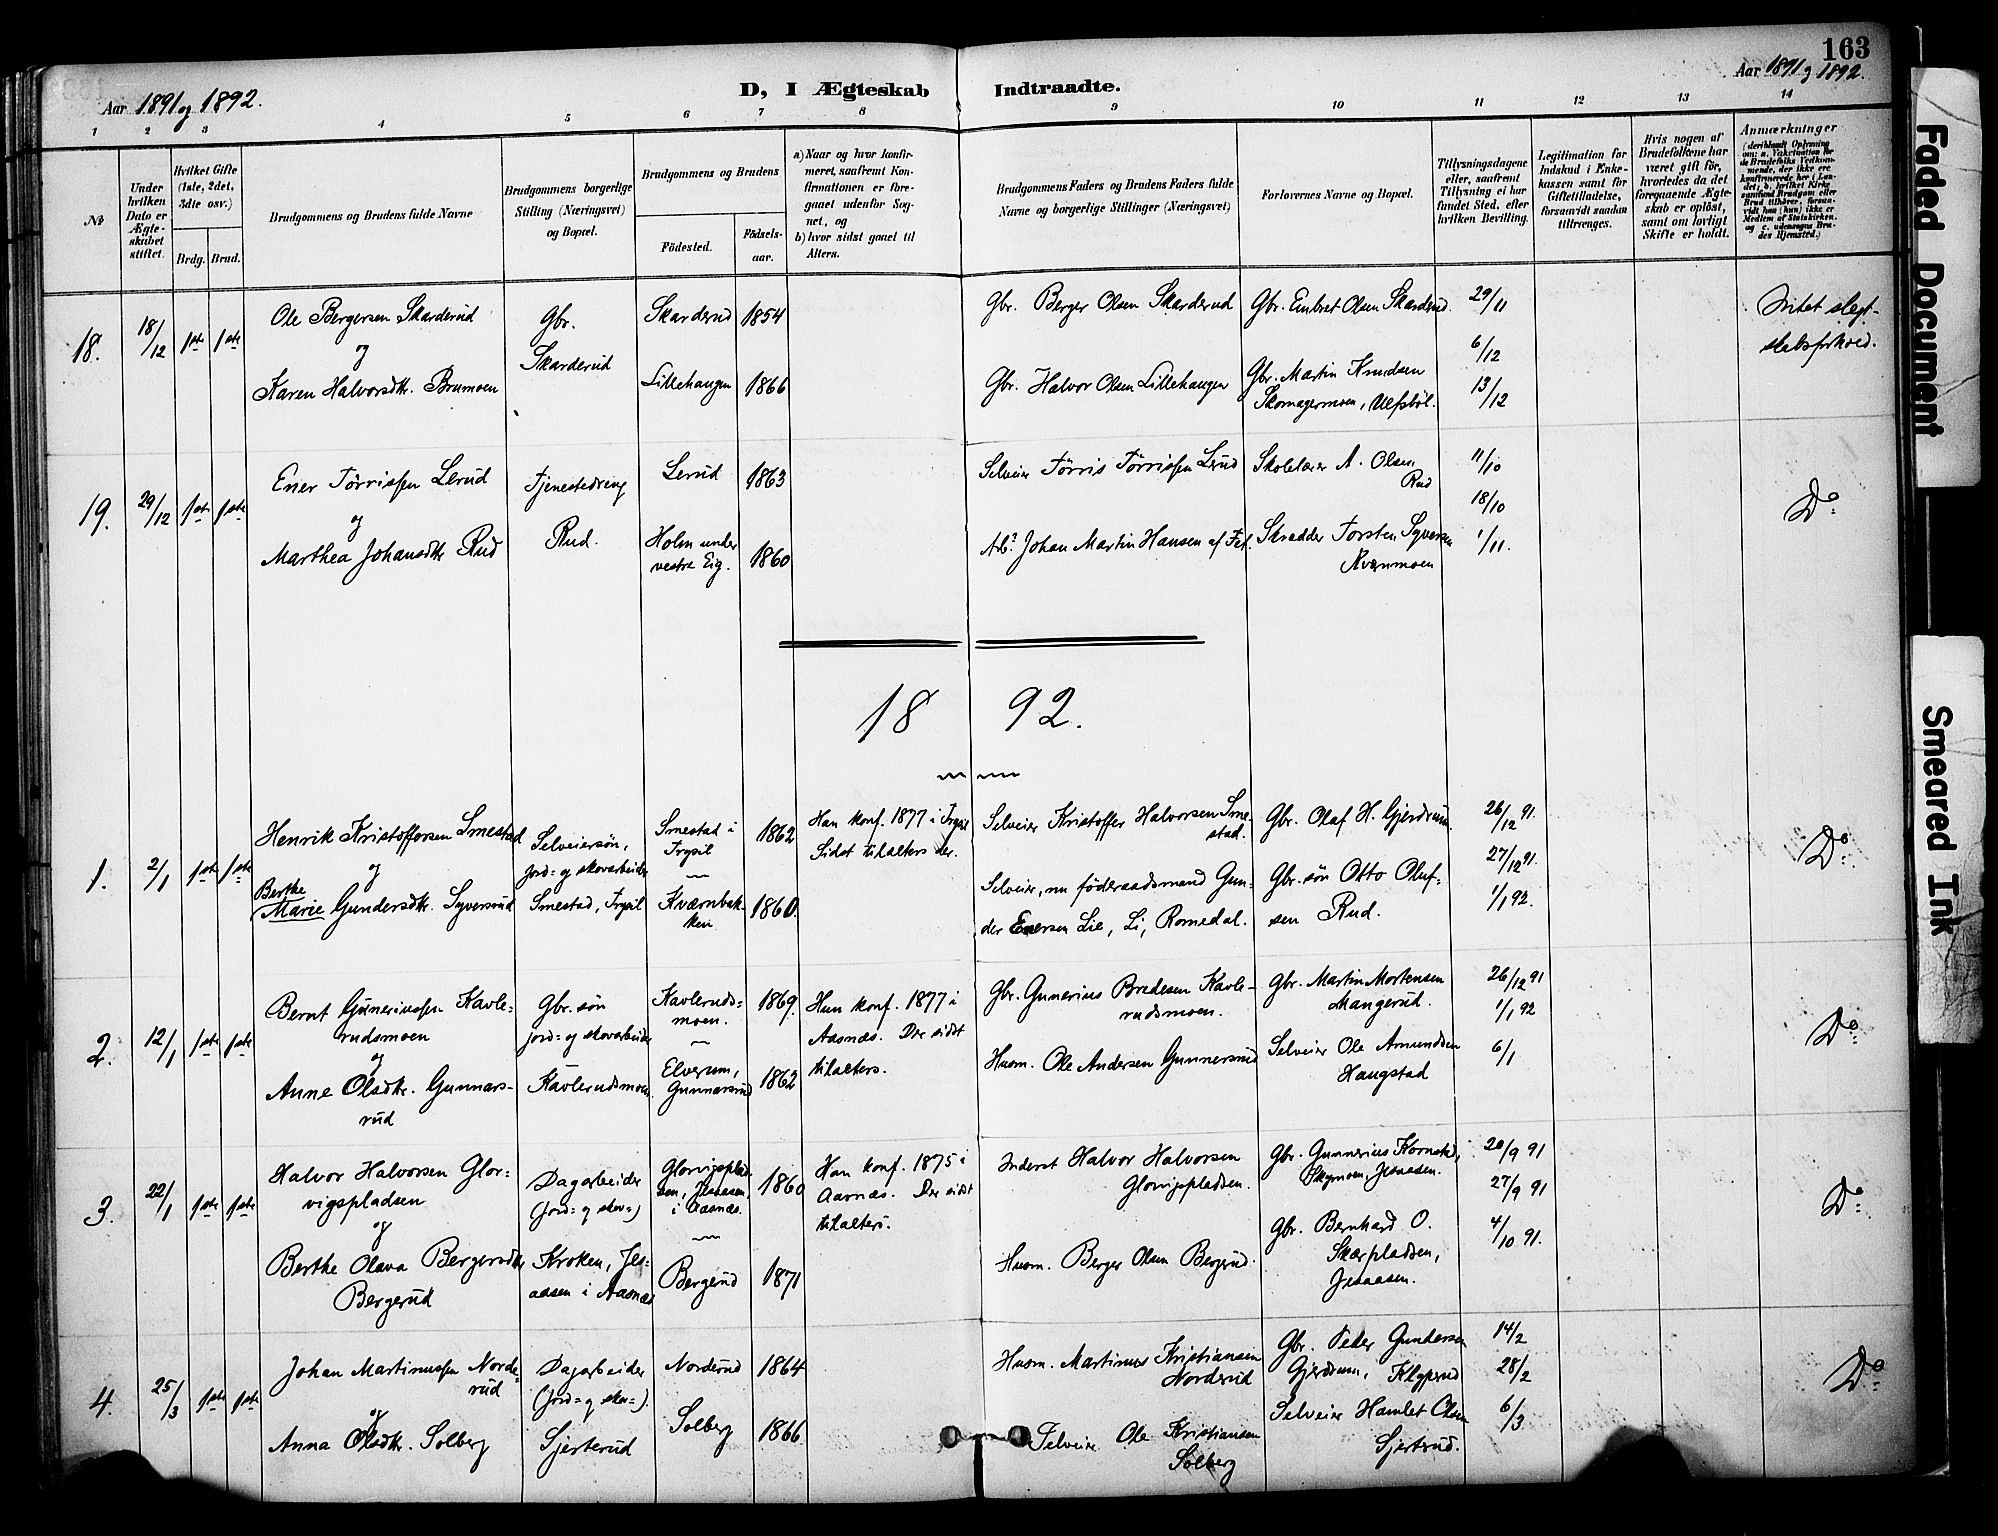 163
Aar 1891 og 1892.
D, I Ægteskab Indtraadte.
Aar 1891 og 1892.
1 2 3 4 5 6 7 8 9 10 11 12 13 14
№
Under
hvilken
Dato er
Ægte-
skabet
stiftet.
Hvilket Gifte
(1ste, 2det,
3die osv.)
Brdg. Brud.
Brudgommens og Brudens fulde Navne
Brudgommens borgerlige
Stilling (Næringsvei)
og Bopæl.
Brudgommens og Brudens
Födested.
Födsels-
aar.
a) Naar og hvor konfir-
meret, saafremt Kon-
firmationen er fore-
gaaet udenfor Sog-
net, og
b) hvor sidst gaaet til
Alters.
Brudgommens Faders og Brudens Faders fulde
Navne og borgerlige Stillinger (Næringsvei)
Forlovernes Navne og Bopæl.
Tillysningsdagene
eller, saafremt
Tillysning ei har
fundet Sted, efter
hvilken Bevilling.
Legitimation for
Indskud i Enke-
kassen samt for
Giftetilladelse,
forsaavidt saadan
tiltrænges.
Hvis nogen af
Brudefolkene har
været gift för,
hvorledes da det
foregaaende Ægte-
skab er oplöst,
samt om lovligt
Skifte er holdt.
Anmærkninger
(deriblandt Oplysning
om: a. Vakcination for
de Brudefolks Vedkom-
mende, der ikke ere
konfirmerede her i Lan-
det; b. hvilket Kirke-
samfund Brudgom eller
Brud tilhörer, forsaa-
vidt han (hun) ikke er
Medlem af Statskirken,
og c. udensogns Bru-
des Hjemsted.)
18.
18/12
1ste 1ste
Ole Bergersen Skarderud
og
Karen Halvorsdtr. Brumoen
Gbr.
Skarderud
Skarderud 1854
Lillehaugen 1866
Gbr. Berger Olsen Skarderud
Gbr. Halvor Olsen Lillehaugen
Gbr. Embret Olsen Skarderud
Gbr. Martin Knudsen
Skomagermoen, Ulfsböl.
29/11
6/12
13/12
Intet slegt-
skabsforhold.
19.
29/12
1ste 1ste
Ener Törrissen Lerud
og
Marthea Johansdtr Rud
Tjenestedreng
Rud.
Lerud 1863
Holm under
vestre Eig. 1860
Selveier Törris Törrissen Lerud
Arb? Johan Martin Hansen af Fet.
Skolelærer A. Olsen
Rud
Skrædder Torsten Syversen
Kvernmoen
11/10
18/10
1/11.
Do
1892.
1.
2/1
1ste 1ste
Henrik Kristoffersen Smestad
og
Berthe
Marie Gundersdtr. Syversrud
Selveiersön,
jord= og skovarbeider
Smestad, Trysil
Smestad i
Trysil 1862
Kværnbak-
ken 1860.
Han konf. 1877 i Trysil
Sidst tilalters der.
Selveier Kristoffer Halvorsen Sme-
stad.
Selveier, nu föderaadsmand Gun-
der Enersen Lie, Li, Romedal.
Gbr. Olaf H. Gjerdrum.
Gbr. sön Otto Oluf-
sen Rud.
26/12 91.
27/12 91.
1/1 92.
Do
2.
12/1
1ste 1ste
Bernt Guneriussen Kavle-
rudsmoen
og
Anne Olsdtr. Gunnars-
rud
Gbr. sön
jord= og skovarbeider
Kavlerudsmoen.
Kavleruds=
moen. 1869.
Elverum,
Gunnarsrud 1862
Hun konf. 1877 i
Aasnæs. Der sidst
tilalters.
Gbr. Gunerius Bredesen Kavle-
rudsmoen.
Husm. Ole Andersen Gunnersrud
Gbr. Martin Mortensen
Mangerud.
Selveier Ole Amundsen
Haugstad
26/12 91
1/1 92
6/1
Do
3.
22/1
1ste 1ste
Halvor Halvorsen Glor-
vigspladsen
og
Berthe Olava Bergersdtr
Bergerud
Dagarbeider
(jord= og skov=)
Kroken, Jes-
aasen i Aasnæs
Glorvigsplad-
sen, Jesaasen,
i Aasnæs. 1860
Bergerud 1871
Han konf. 1875 i
Aasnæs. Der sidst
tilalters.
Inderst Halvor Halvorsen
Glorvigspladsen.
Husm. Berger Olsen Bergerud.
Gbr. Gunnerius
Jesaasen.
Gbr. Bernhard O.
Skærpladsen,
Jesaasen.
20/9 91
27/9 91
4/10 91.
Do
4.
25/3
1ste 1ste
Johan Martinussen Norde-
rud
og
Anna Olsdtr. Solberg
Dagarbeider
(jord= og skov=).
Sjerterud
Norderud 1864
Solberg 1866
Husm. Martinus Kristiansen
Norderud
Selveier Ole Kristiansen
Solberg
Gbr. Peder Gundersen
Gjerdrum, Klyperud
Selveier Hamlet Olsen
Sjertrud.
14/2
28/2
6/3
Do
Faded Document
Smeared Ink